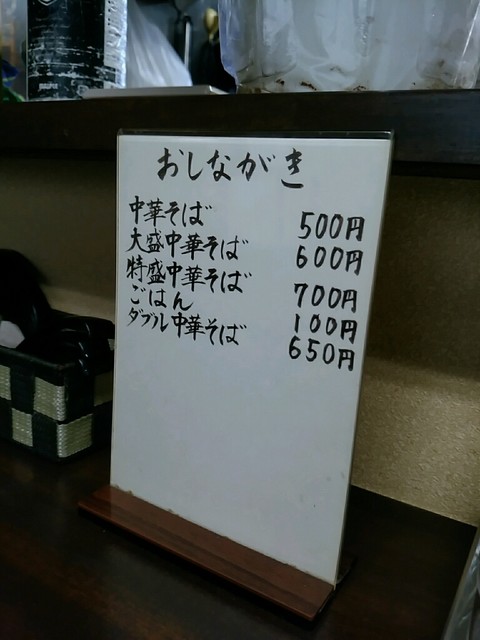 おしながき
中華そば 500円
大盛中華そば 600円
特盛中華そば 700円
ごはん 100円
ダブル中華そば 650円